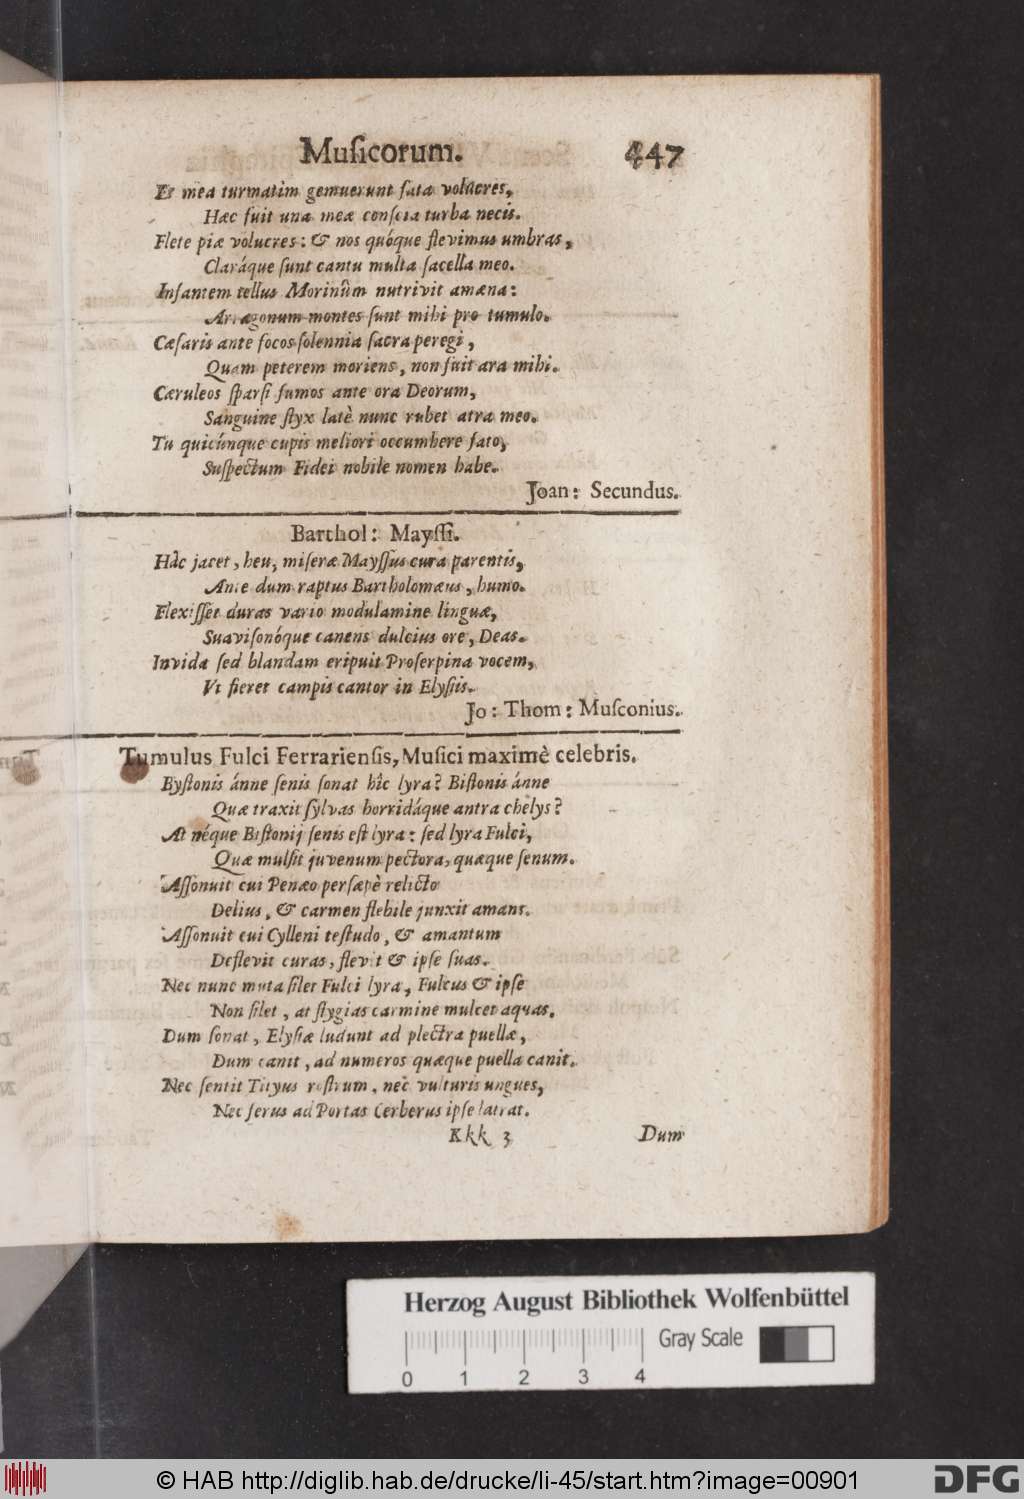 Muſicorum. 447
Et mea turmatìm gemuerunt fata volucres,
Hæc fuit una meæ conſcia turba necis.
Flete piæ volucres: & nos quóque flevimus umbras,
Claráque ſunt cantu multa ſacella meo.
Infantem tellus Morinûm nutrivit amæna:
Arragonum montes ſunt mihi pro tumulo.
Cæſaris ante focos ſolennia ſacra peregi,
Quam peterem moriens, non fuit ara mihi.
Cæruleos ſparſi fumos ante ora Deorum,
Sanguine ſtyx latè nunc rubet atra meo.
Tu quicúnque cupis meliori occumbere fato,
Suſpectum Fidei nobile nomen habe.
Joan: Secundus.
Barthol: Mayſſi.
Hâc jacet, heu, miſeræ Mayſſus cura parentis,
Ante dum raptus Bartholomæus, humo.
Flexiſſet duras vario modulamine linguæ,
Suaviſonóque canens dulcius ore, Deas.
Invida ſed blandam eripuit Proſerpina vocem,
Vt fieret campis cantor in Elyſiis.
Jo: Thom: Muſconius.
Tumulus Fulci Ferrarienſis, Muſici maximè celebris.
Byſtonis ánne ſenis ſonat hîc lyra? Biſtonis ánne
Quæ traxit ſylvas horridáque antra chelys?
At néque Biſtonij ſenis eſt lyra: ſed lyra Fulci,
Quæ mulſit juvenum pectora, quæque ſenum.
Aſſonuit cui Penæo perſæpè relicto
Delius, & carmen flebile junxit amans.
Aſſonuit cui Cylleni teſtudo, & amantum
Deflevit curas, flevit & ipſe ſuas.
Nec nunc muta ſilet Fulci lyra, Fulcus & ipſe
Non ſilet, at ſtygias carmine mulcet aquas.
Dum ſonat, Elyſiæ ludunt ad plectra puellæ,
Dum canit, ad numeros quæque puella canit.
Nec ſentit Tityus roſtrum, nec vulturis ungues,
Nec ſerus ad Portas Cerberus ipſe latrat.
Kkk 3 Dum
Herzog August Bibliothek Wolfenbüttel
Gray Scale
0 1 2 3 4
© HAB http://diglib.hab.de/drucke/li-45/start.htm?image=00901
DFG